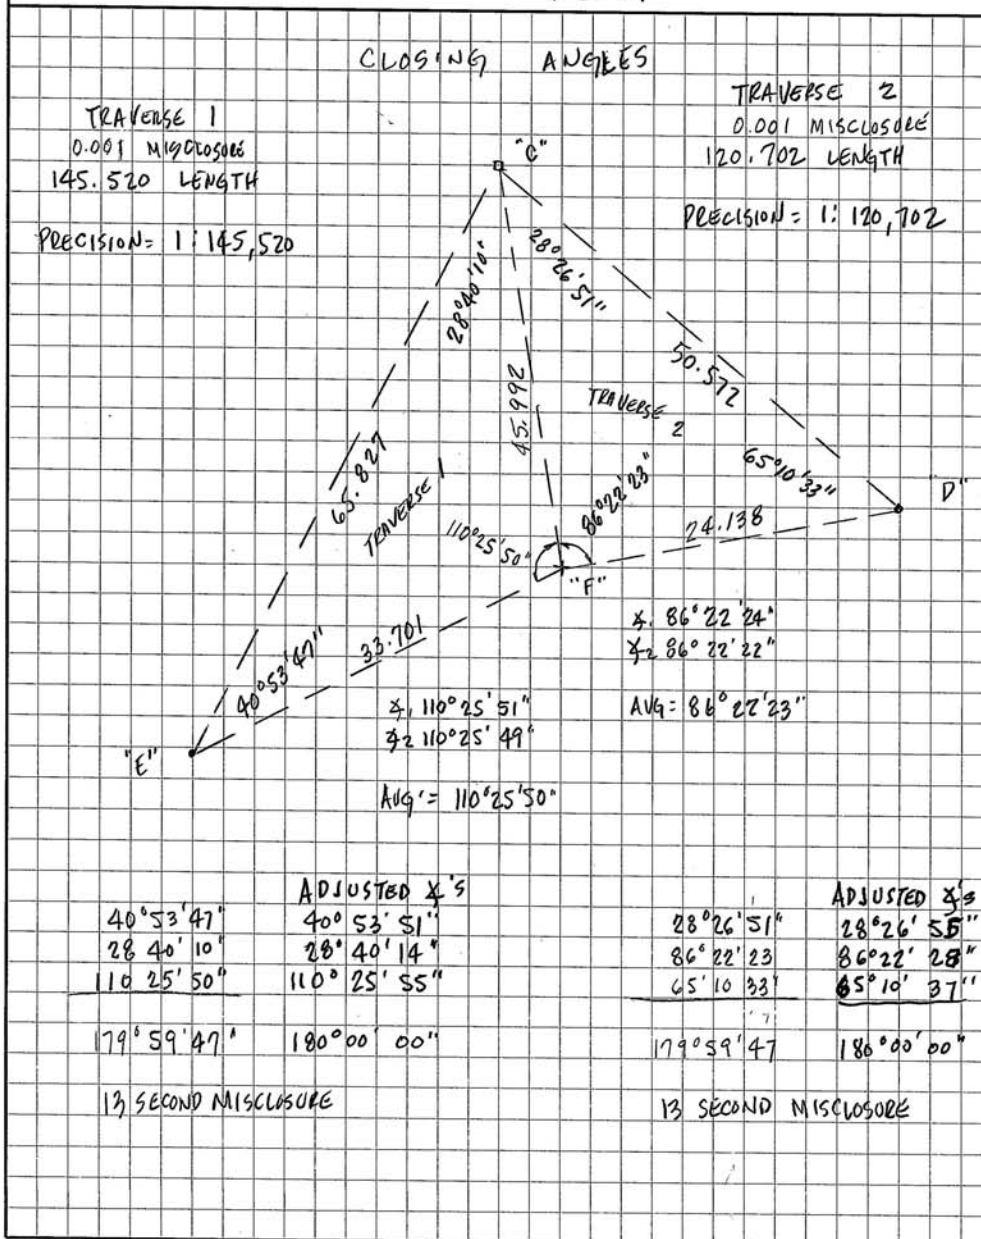 CLOSING ANGLES
TRAVERSE 1
0.001 MISCLOSURE
145.520 LENGTH
PRECISION= 1:145,520
TRAVERSE 2
0.001 MISCLOSURE
120.702 LENGTH
PRECISION= 1:120,702
"C"
28°40'10"
28°26'51"
45.992
50.572
TRAVERSE
2
65.827
TRAVERSE 1
110°25'50"
86°22'23"
65°10'33"
"D"
24.138
"F"
33.701
40°53'47"
"E"
∡1 110°25'51"
∡2 110°25'49"
AVG'= 110°25'50"
∡1 86°22'24"
∡2 86°22'22"
AVG= 86°22'23"
ADJUSTED ∡'S
40°53'47" 40°53'51"
28 40'10" 28°40'14"
110 25'50" 110°25'55"
179°59'47" 180°00'00"
13 SECOND MISCLOSURE
ADJUSTED ∡'s
28°26'51" 28°26'55"
86°22'23 86°22'28"
65°10 33" 65°10'37"
179°59'47 180°00'00"
13 SECOND MISCLOSURE